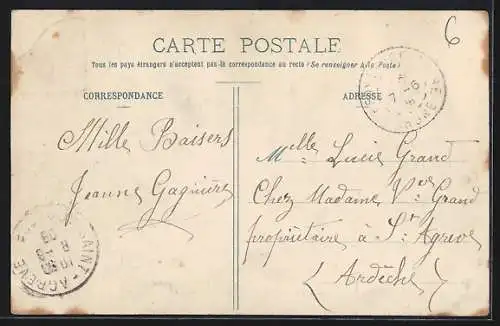 6
CARTE POSTALE
Tous les pays étrangers n'acceptent pas la correspondance au recto (Se renseigner à la Poste)
CORRESPONDANCE
ADRESSE
Mille Baisers
Jeanne Gagnière
Melle Lucie Grand
Chez Madame Vve Grand
propriétaire à St Agrève
(Ardèche)
SAINT-AGRÈVE